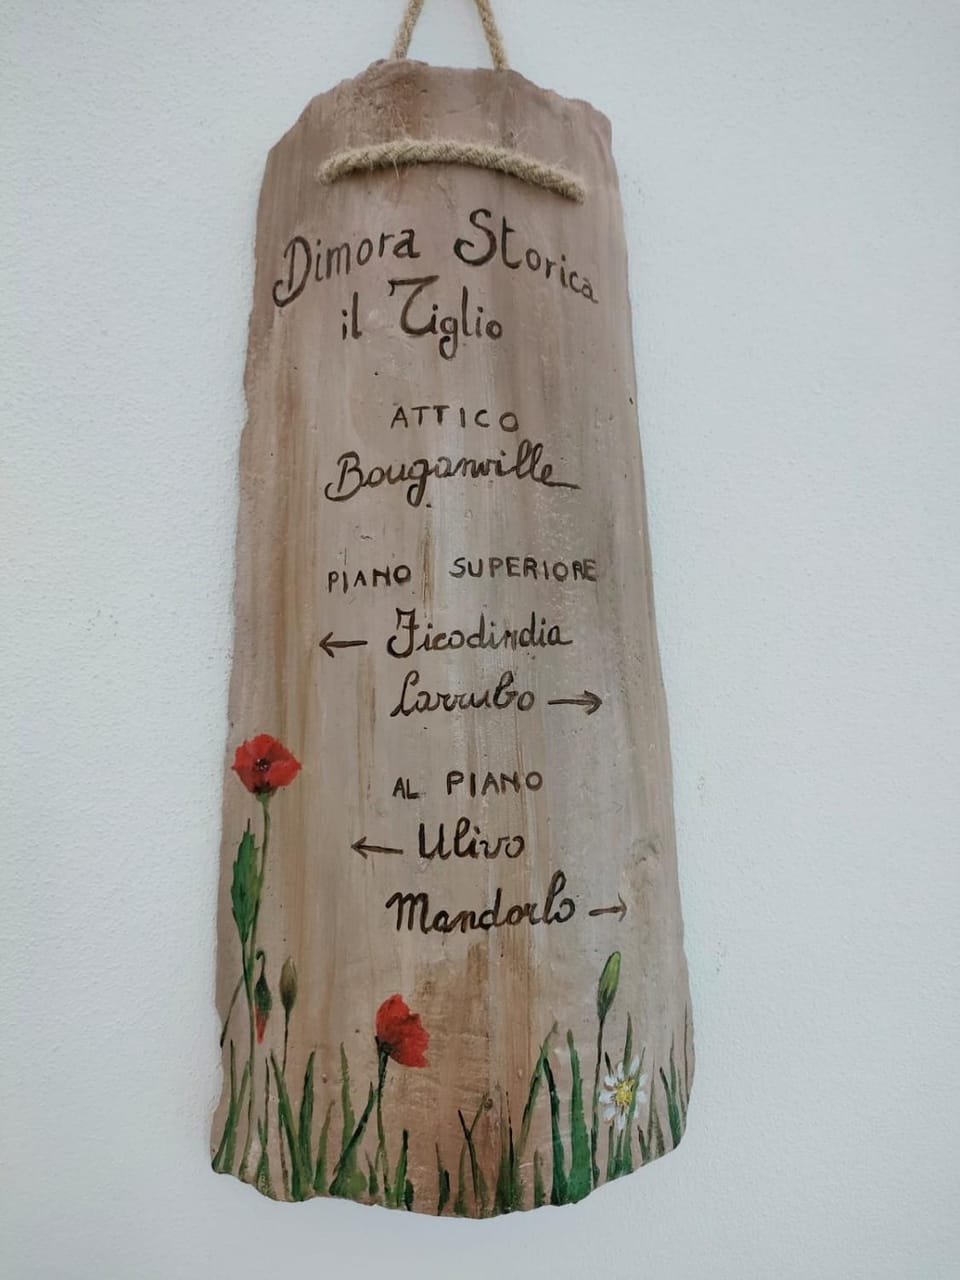 Dimora Storica
il Tiglio
ATTICO
Bouganville
PIANO SUPERIORE
← Ficodindia
Carrubo →
AL PIANO
← Ulivo
Mandorlo →